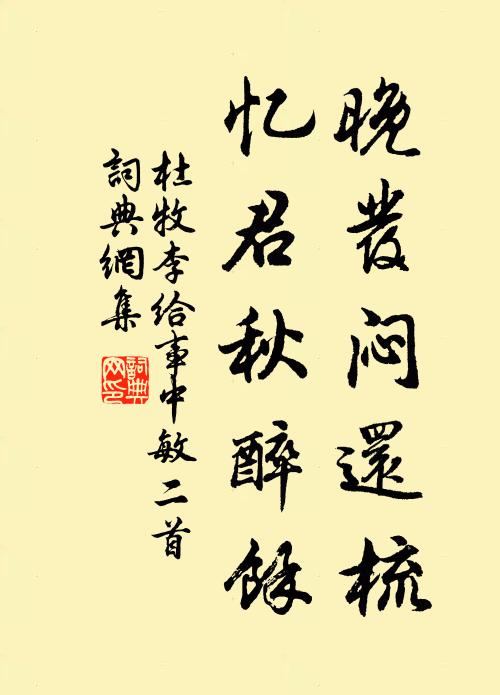 晚發闷還梳
忆君秋醉餘
杜牧李给事中敏二首
詞典網集
詞典
网印